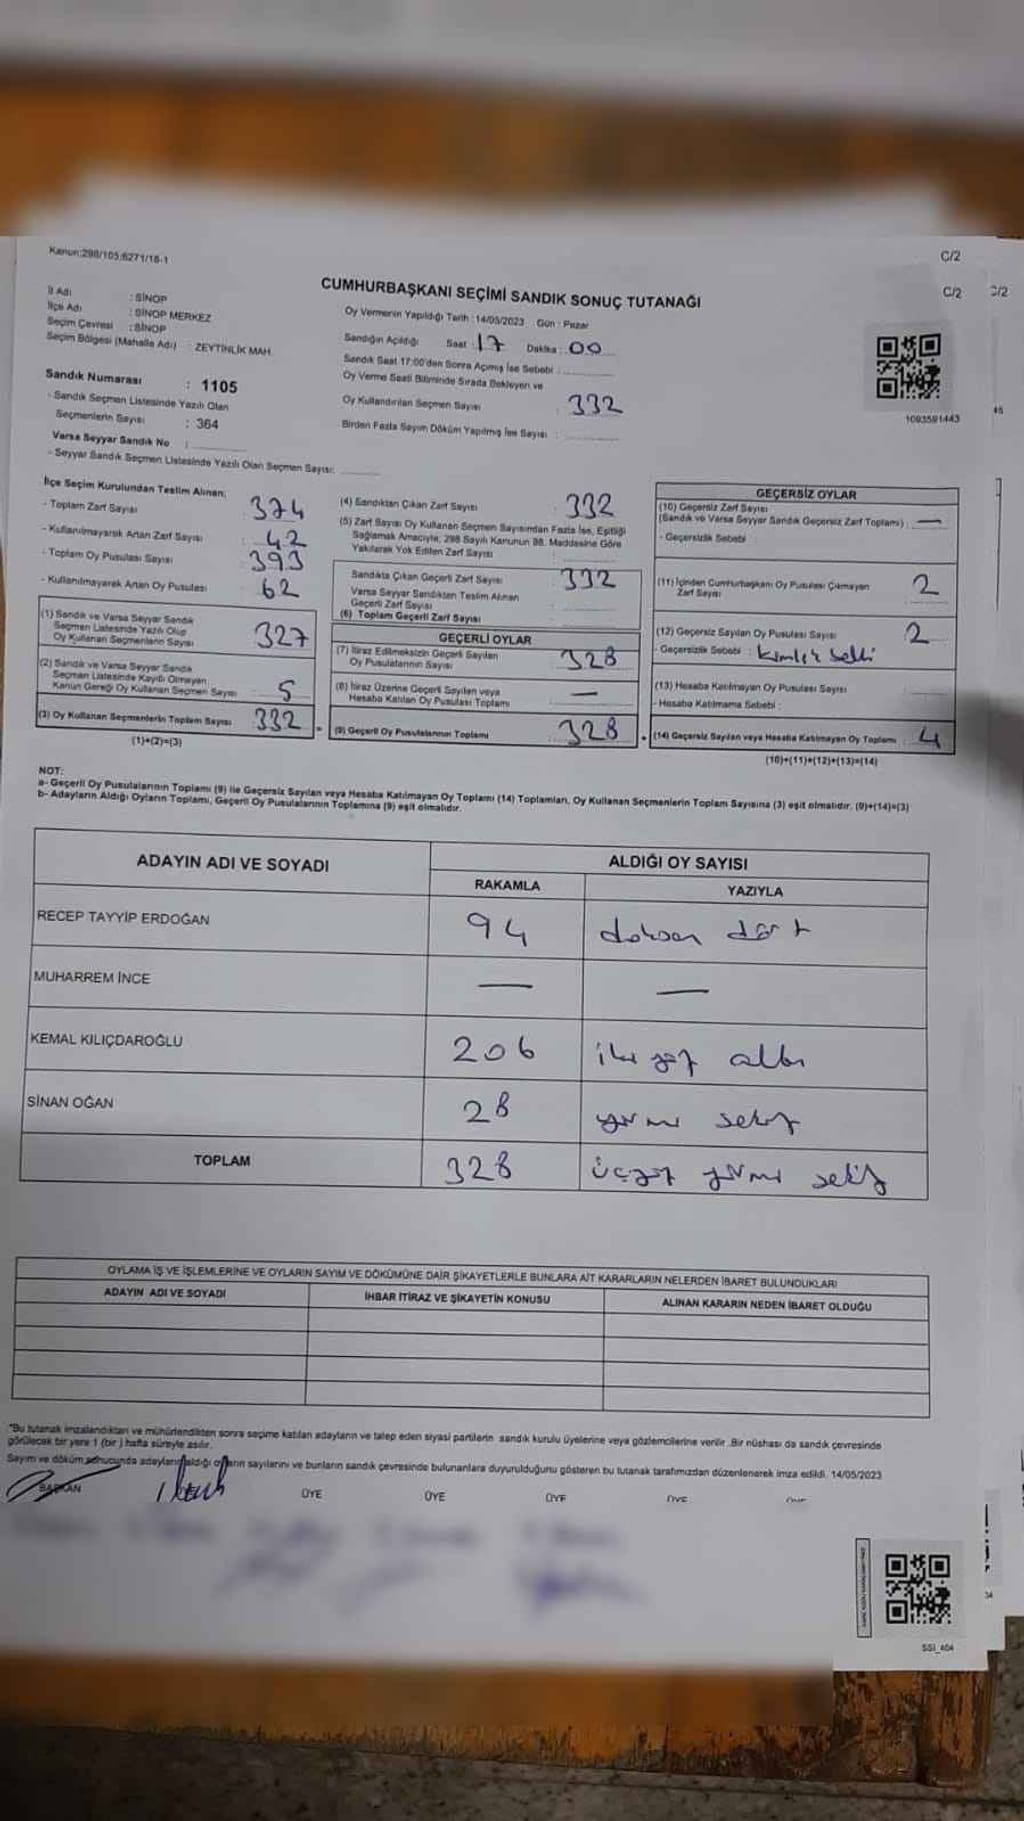 Kanun:298/105;6271/18-1
C/2
CUMHURBAŞKANI SEÇİMİ SANDIK SONUÇ TUTANAĞI
C/2
İl Adı : SİNOP
İlçe Adı : SİNOP MERKEZ
Seçim Çevresi : SİNOP
Seçim Bölgesi (Mahalle Adı) : ZEYTİNLİK MAH.
Oy Vermenin Yapıldığı Tarih : 14/05/2023 Gün : Pazar
Sandığın Açıldığı Saat : 17 Dakika : 00
Sandık Saat 17:00'den Sonra Açılmış İse Sebebi :
Oy Verme Saati Bitiminde Sırada Bekleyen ve
Oy Kullandırılan Seçmen Sayısı : 332
Birden Fazla Sayım Döküm Yapılmış İse Sayısı :
1093591443
Sandık Numarası : 1105
- Sandık Seçmen Listesinde Yazılı Olan
Seçmenlerin Sayısı : 364
Varsa Seyyar Sandık No :
- Seyyar Sandık Seçmen Listesinde Yazılı Olan Seçmen Sayısı:
İlçe Seçim Kurulundan Teslim Alınan;
- Toplam Zarf Sayısı 374
- Kullanılmayarak Artan Zarf Sayısı : 42
- Toplam Oy Pusulası Sayısı 393
- Kullanılmayarak Artan Oy Pusulası 62
(1) Sandık ve Varsa Seyyar Sandık
Seçmen Listesinde Yazılı Olup
Oy Kullanan Seçmenlerin Sayısı 327
(2) Sandık ve Varsa Seyyar Sandık
Seçmen Listesinde Kayıtlı Olmayan
Kanun Gereği Oy Kullanan Seçmen Sayısı 5
(3) Oy Kullanan Seçmenlerin Toplam Sayısı 332
(1)+(2)=(3)
(4) Sandıktan Çıkan Zarf Sayısı : 332
(5) Zarf Sayısı Oy Kullanan Seçmen Sayısından Fazla İse, Eşitliği
Sağlamak Amacıyla; 298 Sayılı Kanunun 98. Maddesine Göre
Yakılarak Yok Edilen Zarf Sayısı
Sandıkta Çıkan Geçerli Zarf Sayısı 332
Varsa Seyyar Sandıkten Teslim Alınan
Geçerli Zarf Sayısı
(6) Toplam Geçerli Zarf Sayısı
GEÇERLİ OYLAR
(7) İtiraz Edilmeksizin Geçerli Sayılan
Oy Pusulalarının Sayısı 328
(8) İtiraz Üzerine Geçerli Sayılan veya
Hesaba Katılan Oy Pusulası Toplamı —
(9) Geçerli Oy Pusulalarının Toplamı 328
GEÇERSİZ OYLAR
(10) Geçersiz Zarf Sayısı
(Sandık ve Varsa Seyyar Sandık Geçersiz Zarf Toplamı) : —
- Geçersizlik Sebebi :
(11) İçinden Cumhurbaşkanı Oy Pusulası Çıkmayan
Zarf Sayısı 2
(12) Geçersiz Sayılan Oy Pusulası Sayısı 2
- Geçersizlik Sebebi : kimlik belli
(13) Hesaba Katılmayan Oy Pusulası Sayısı
- Hesaba Katılmama Sebebi :
(14) Geçersiz Sayılan veya Hesaba Katılmayan Oy Toplamı 4
(10)+(11)+(12)+(13)=(14)
NOT:
a- Geçerli Oy Pusulalarının Toplamı (9) ile Geçersiz Sayılan veya Hesaba Katılmayan Oy Toplamı (14) Toplamları, Oy Kullanan Seçmenlerin Toplam Sayısına (3) eşit olmalıdır. (9)+(14)=(3)
b- Adayların Aldığı Oyların Toplamı, Geçerli Oy Pusulalarının Toplamına (9) eşit olmalıdır.
ADAYIN ADI VE SOYADI
ALDIĞI OY SAYISI
RAKAMLA YAZIYLA
RECEP TAYYİP ERDOĞAN 94 doksan dört
MUHARREM İNCE — —
KEMAL KILIÇDAROĞLU 206 iki yüz altı
SİNAN OĞAN 28 yirmi sekiz
TOPLAM 328 üçyüz yirmi sekiz
OYLAMA İŞ VE İŞLEMLERİNE VE OYLARIN SAYIM VE DÖKÜMÜNE DAİR ŞİKAYETLERLE BUNLARA AİT KARARLARIN NELERDEN İBARET BULUNDUKLARI
ADAYIN ADI VE SOYADI İHBAR İTİRAZ VE ŞİKAYETİN KONUSU ALINAN KARARIN NEDEN İBARET OLDUĞU
"Bu tutanak imzalandıktan ve mühürlendikten sonra seçime katılan adayların ve talep eden siyasi partilerin sandık kurulu üyelerine veya gözlemcilerine verilir .Bir nüshası da sandık çevresinde
görülecek bir yere 1 (bir ) hafta süreyle asılır.
Sayım ve döküm sonucunda adayların aldığı oyların sayılarını ve bunların sandık çevresinde bulunanlara duyurulduğunu gösteren bu tutanak tarafımızdan düzenlenerek imza edildi. 14/05/2023
BAŞKAN ÜYE ÜYE ÜYE ÜYE
SSİ_404